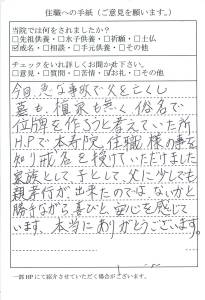 住職への手紙（ご意見を願います。）
当院では何をされましたか？
□先祖供養・□水子供養・□祈願・□土仏
☑戒名・□相談・□手元供養・□その他
チェックをいれ詳しくお聞かせ下さい。
□意見・□質問・□苦情・☑お礼・□その他
今回、急な事故で父を亡くし
墓も檀家も無く俗名で
位牌を作ろうと考えていた所
H.Pで本寿院、住職様の事を
知り戒名を授けていただけました
家族として、子として、父に少しでも
親孝行が出来たのではないかと
勝手ながら、喜びと安心を感じて
います。本当にありがとうございます。
一部HPにて紹介させていただく場合がございます。